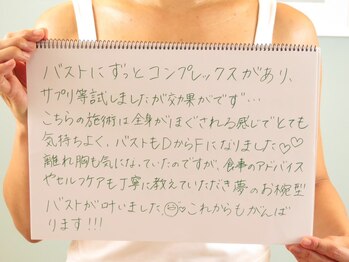 バストにずっとコンプレックスがあり、
サプリ等試しましたが効果がでず…
こちらの施術は全身がほぐされる感じでとても
気持ちよく、バストもDからFになりました♡♡
離れ胸も気になっていたのですが、食事のアドバイス
やセルフケアも丁寧に教えていただき夢のお椀型
バストが叶いました☺♡これからもがんば
ります!!!